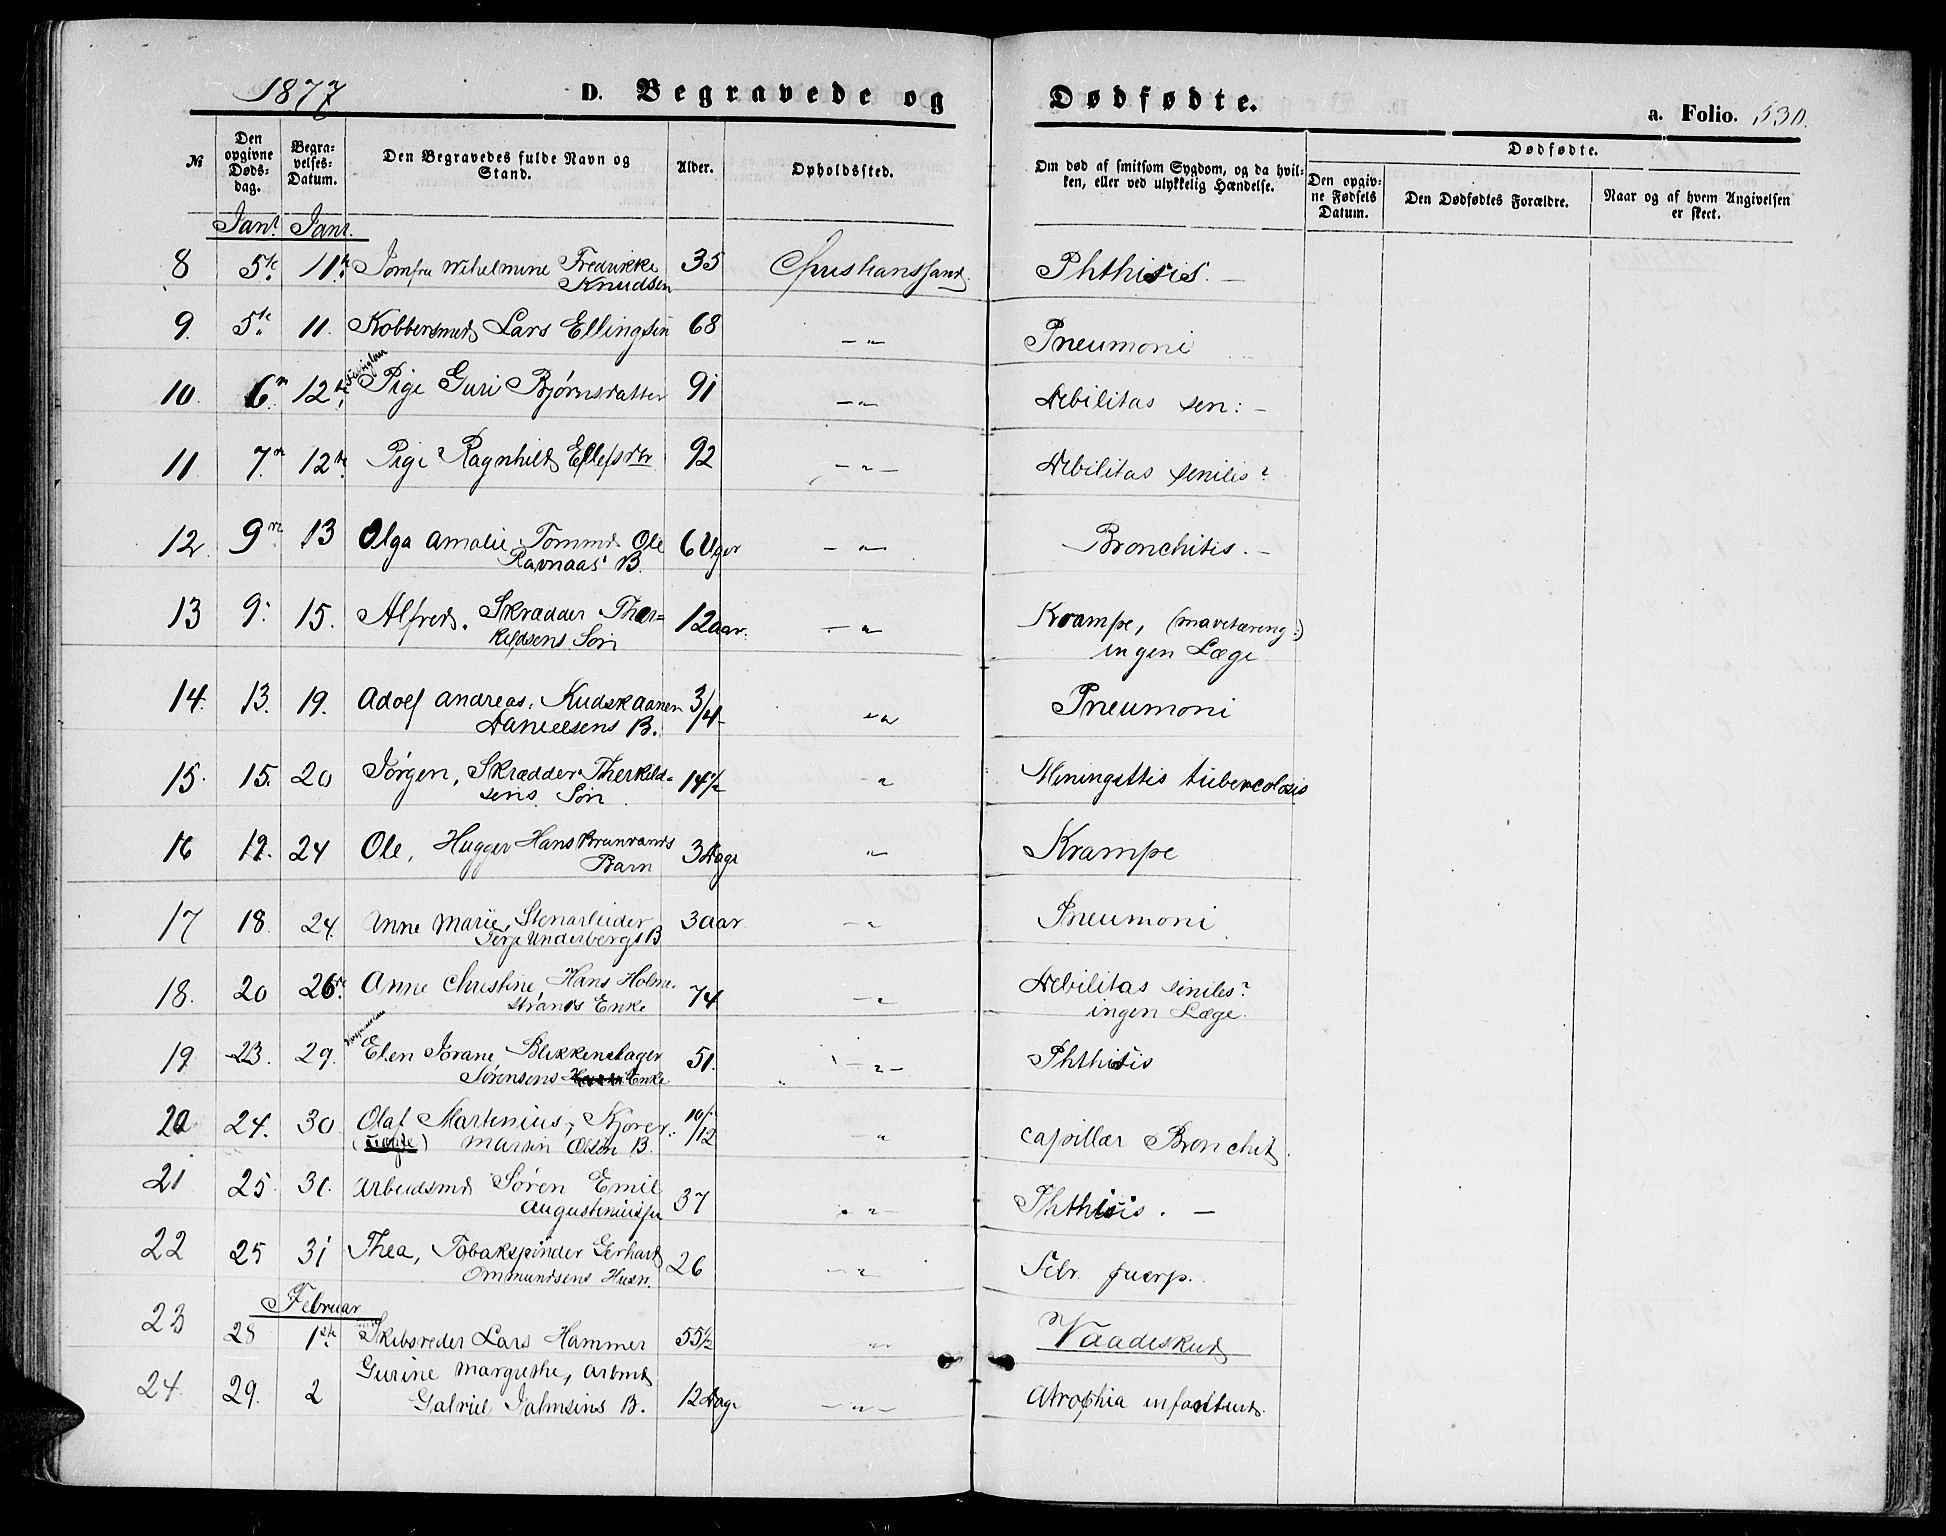 1877
D. Begravede og Dødfødte.
a. Folio. 530.
№
Den opgivne Døds-dag.
Begra-velses-Datum.
Den Begravedes fulde Navn og Stand.
Alder.
Opholdssted.
Om død af smitsom Sygdom, og da hvil-ken, eller ved ulykkelig Hændelse.
Dødfødte.
Den opgiv-ne Fødsels Datum.
Den Dødfødtes Forældre.
Naar og af hvem Angivelsen er skeet.
Janr. Janr.
8 5te 11te Jomfru Wilhelmine Fredrikke 35 Christianssand Phthisis. —
Knudsen
9. 5te 11. Kobbersmed Lars Ellingsen 68 — " Pneumoni
10. 6te 12te Pige Guri Bjørnsdatter 91 — " Debilitas sen: —
11 7de 12te Pige Ragnhild Ellefsdtr 92 — " — Debilitas senilis?
12. 9de 13 Olga Amalie Tømmd Ole 6 Uger — " Bronchitis. —
Ravnaas' B.
13 9. 15. Alfred. Skrædder Ther= 12 aar. — " Krampe, (mavetæreng:)
kildsens Søn ingen Læge
14. 13. 19. Adolf Andreas, Kudskaanen 3/4 " Pneumoni
Danielsens B.
15. 15. 20 Jørgen, Skrædder Therkild= 14 1/2 " Meningittis tubercolosis
sens. Søn
16 19. 24 Ole, Hugger Hans Brunvands 3 Dage " Krampe
Barn
17 18. 24. Anne Marie, Stenarbeider 3 aar — " Pneumoni
Terje Underbergs B
18. 20 26de Anne Christine, Hans Holm= 74 — " Debilitas senilis?
strands Enke ingen Læge.
19. 23. 29. Elen Jorane Blikkenslager 51. — " — Phthisis
Sørensens Enke
20 24. 30. Olaf Martinius, Kjører 10/12 — " capillær Bronchit.
Martin Olsen B.
21 25. 31. Arbeidsmd Søren Emil 37 " Phthisis. —
Augustiniusen
22 25 31 Thea, Tobakspinder Gerhard 26 — " Febr. puerp.
Ommundsens Husn.
Februar
23 28 1ste Skibsreder Lars Hammer 55 1/2 " Vaadeskud
24. 29. 2 Gurine Margrethe, Arbmd
Gabriel Salmsens B. 12 Dage — " — Atrophia infantum.